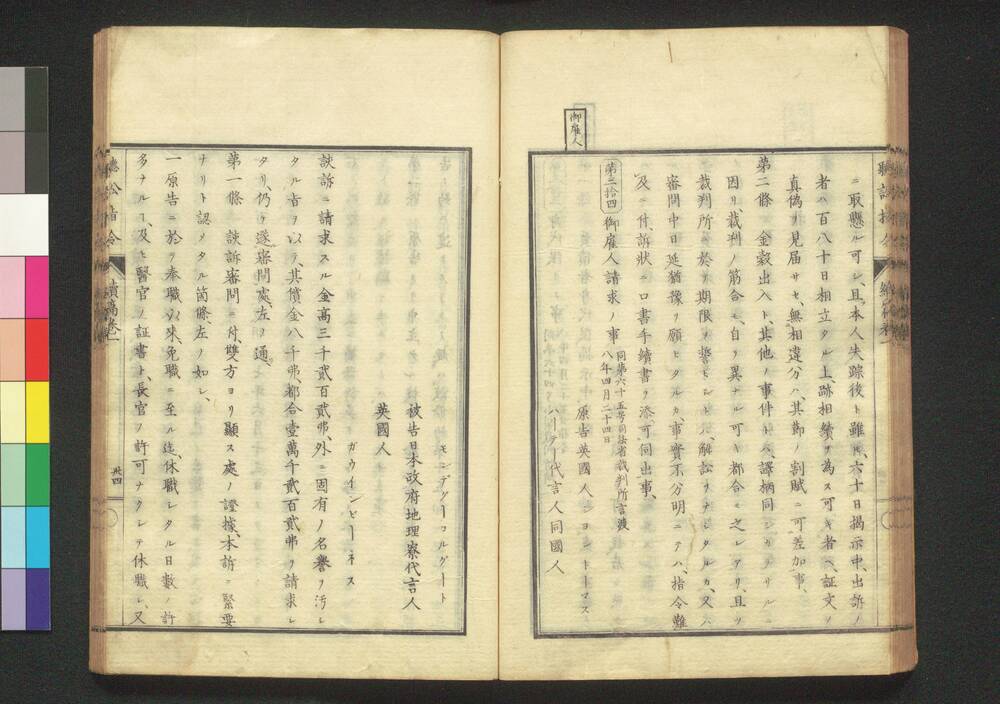 ニ取懸ル可シ、且、本人失踪後ト雖𪜈、六十日揭示中、出訴ノ
者ハ百八十日相立タル上、跡相續ヲ為ス可キ者ヘ、證文ノ
真偽ヲ見届サセ、無相違分ハ、其節ノ割賦ニ可差加事、
第二條 金穀出入ト、其他ノ事件トハ、譯柄同シカラサルニ
因リ、裁判ノ筋合モ、自ラ異ナル可キ都合モ之レアリ、且ツ
裁判所ニ於テ期限ヲ誓ヒ、解訟ヲナシタルカ、又ハ
審問中日延猶豫ヲ願ヒタルカ、事實不分明ニテハ、指令難
及ニ付、訴狀ニ口書手續書ヲ添可伺出事、
御雇人
第三拾四 御雇人請求ノ事 同第六十五号司法省裁判所言渡
八年四月二十四日
原告英國人ジヨントーマス
ハーテー代言人同國人
モンテグーコルゲート
被告日本政府地理寮代言人
英國人
ガウインピーネス
談訴ニ請求スル金高三千貳百貳弗、外ニ固有ノ名譽ヲ汚シ
タル旨ヲ以テ、其償金八千弗、都合壹萬千貳百貳弗ヲ請求シ
タリ、仍テ遂審問處、左ノ通。
第一條 談訴審問ニ付、雙方ヨリ顯ス處ノ證據、本訴ニ緊要
ナリト認メタル箇條、左ノ如シ、
一原告ニ於テ奉職以来免職ニ至ル迄、休職シタル日數ノ許
多ナルヿ、及ヒ醫官ノ証書ト、長官ノ許可ナクシテ休職シ、又
聽訟指令 續髙卷一
卅四